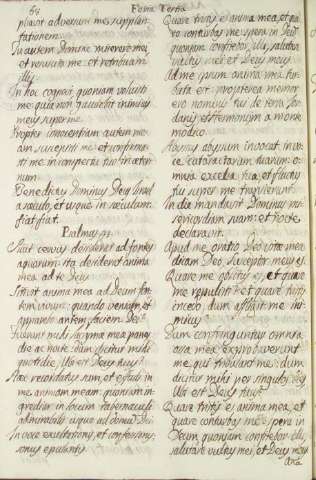 68
Feria Tertia
pliavit adversum me supplan-
tationem.
Tu autem Domine miserere mei,
et resuscita me: et retribuam
illis.
In hoc cognovi quoniam voluisti
me: quia non gaudebit inimicus
meus super me.
Propter innocentiam autem me-
am suscepisti me: et confirmas-
ti me in conspectu tuo in æter-
num.
Benedictus Dominus Deus Israel
a sæculo, et usque in sæculum:
fiat, fiat.
Psalmus 41.
Sicut cervus desiderat ad fontes
aquarum: ita desiderat anima
mea ad te Deus.
Sitivit anima mea ad Deum fon-
tem vivum: quando veniam, et
apparebo ante faciem Dei?
Fuerunt mihi lacrymæ meæ panes
die ac nocte: dum dicitur mihi
quotidie, Ubi est Deus tuus?
Hæc recordatus sum, et effudi in
me animam meam: quoniam in-
grediar in locum tabernaculi
admirabilis usque ad domum Dei.
In voce exultationis, et confessionis:
sonus epulantis.
Quare tristis es anima mea, et qua-
re conturbas me? spera in Deo
quoniam confitebor illi, salutare
vultus mei et Deus meus.
Ad me ipsum anima mea tur-
bata est: propterea memor
ero tui de terra Jor-
danis et Hermonim a monte
modico.
Abyssus abyssum invocat in vo-
ce cataractarum tuarum: o-
mnia excelsa tua, et fluctus
tui super me transierunt.
In die mandavit Dominus mi-
sericordiam suam: et nocte
Apud me oratio Deo vitæ meæ
dicam Deo Susceptor meus es.
Quare me oblitus es, et quare
me repulisti? et quare tristis
incedo, dum affligit me ini-
micus?
Dum confringuntur omnia
ossa mea exprobraverunt
me, qui tribulant me: dum
dicitur mihi per singulos dies
Ubi est Deus tuus?
Quare tristis es anima mea, et
quare conturbas me? spera in
Deum quoniam confitebor illi,
salutare vultus mei, et Deus meus.